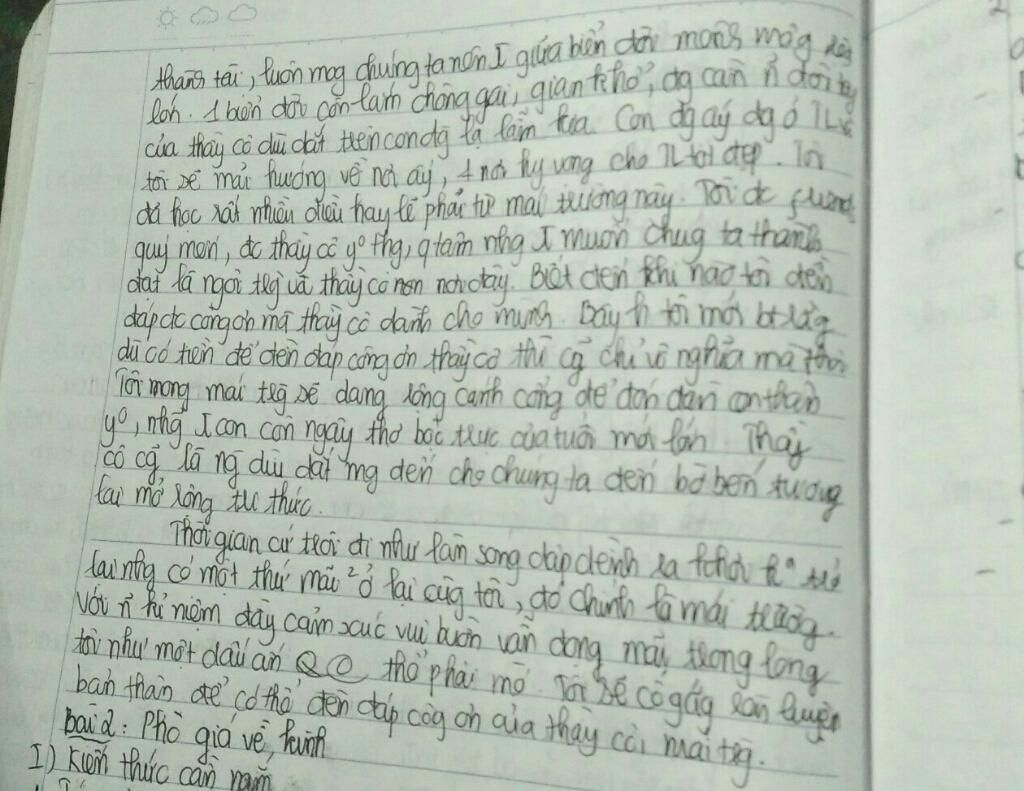 thành tài, luôn mog chúng ta nên I giữa biển đời mênh môg rộg
lớn. 1 biển đời còn lắm chông gai, gian khổ, đg cần n̄ đôi tay
của thầy cô dìu dắt trên con đg lạ lẫm kia. Con đg ấy đg ó TL và
tôi sẽ mãi hướng về nơi ấy, 1 nơi hy vọng cho TL tôi đẹp. Tôi
đã học rất nhiều điều hay lẽ phải từ mái trường này. Tôi đc
quý mến, đc thầy cô y° thg, q tâm nhg I muốn chúg ta thành
đạt là ngôi trg và thầy cô nơi đây. Biết đến khi nào tôi đền
đáp đc công ơn mà thầy cô dành cho mình. Bây h tôi mới bt rằg
dù có tiền để đền đáp công ơn thầy cô thì cg̃ chỉ vô nghĩa mà thôi
Tôi mong mái trg sẽ dang rộng cánh cổng để đón đàn con thân
y°, nhg̃ I con còn ngây thơ bộc trực của tuổi mới lớn. Thầy
cô cg̃ là ng dìu dắt mg đến cho chúng ta đến bờ bến tương
lai mở rộng tri thức.
Thời gian cứ trôi đi như làn sóng dập dềnh ra khơi k° trở
lại nhg có một thứ mãi ² ở lại cùg tôi, đó chính là mái trườg.
Với n̄ kỉ niệm đầy cảm xúc vui buồn vẫn đọng mãi trong lòng
tôi như một dấu ấn thể phai mờ. Tôi sẽ cố gắg rèn luyện
bản thân để có thể đền đáp côg ơn của thầy cô, mái trg.
bài 2: Phò giá về kinh
I) Kiến thức cần nắm